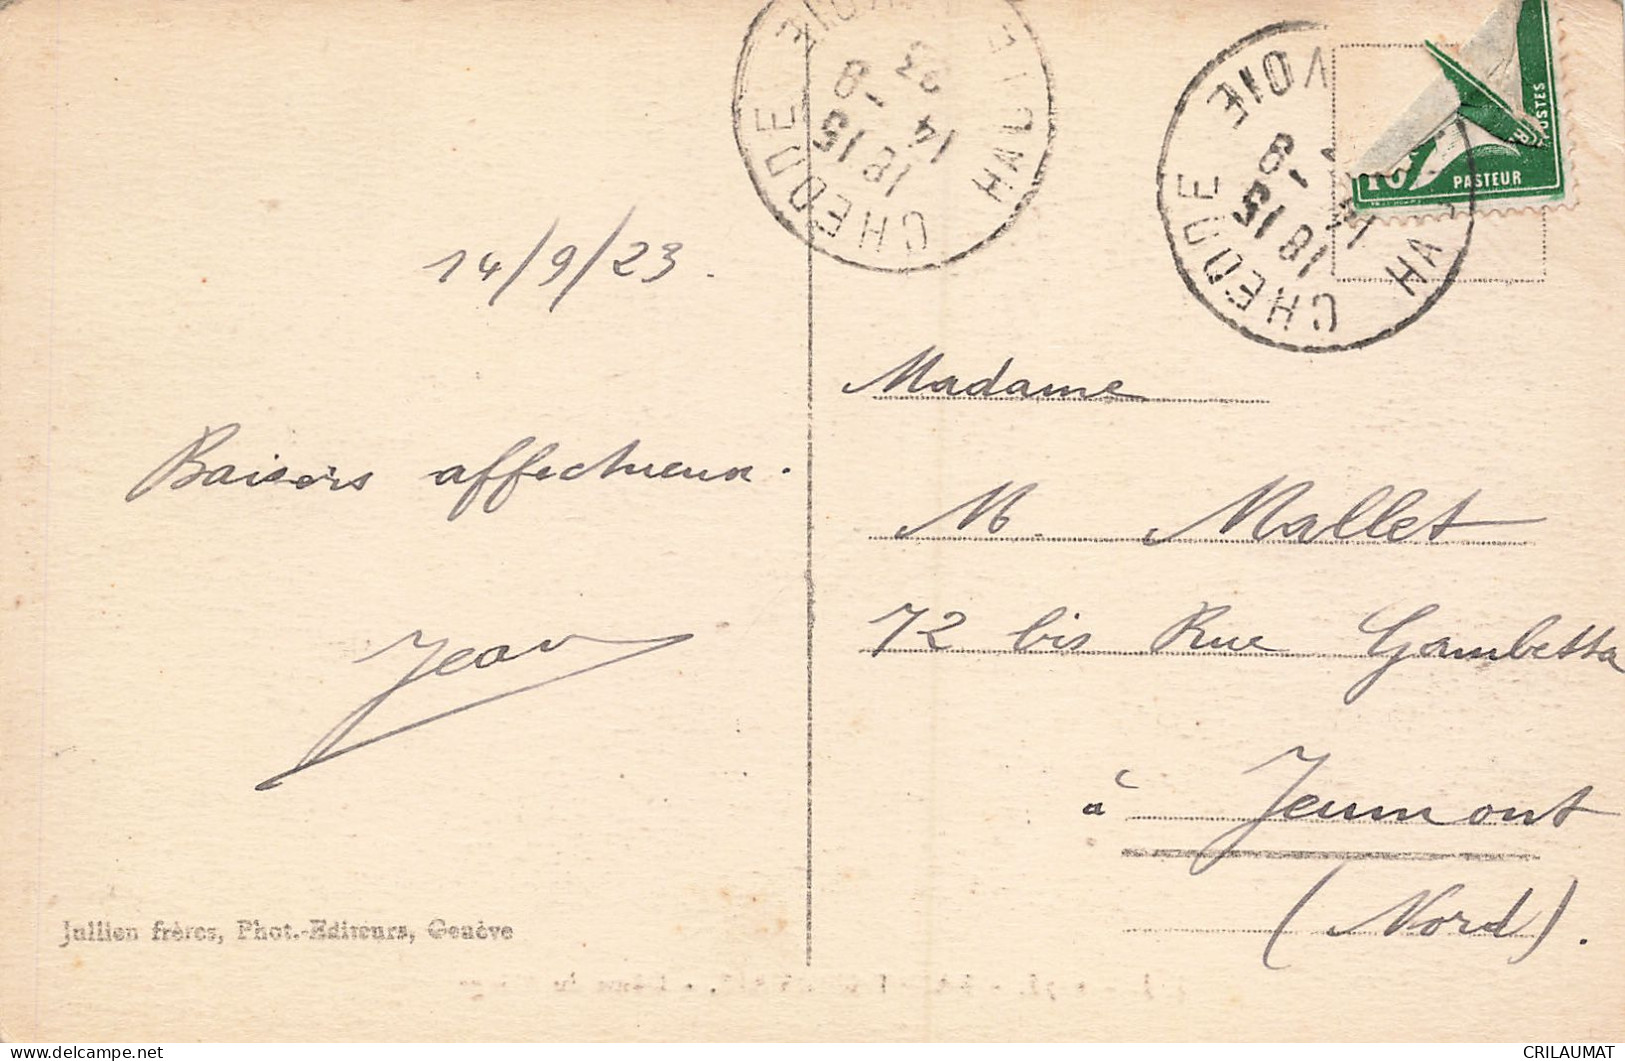 14/9/23.
Baisers affectueux.
Jean
Jullien frères, Phot.-Editeurs, Genève
CHEDDE HAUTE VOIE
18 15
14
9
23
CHEDDE HA VOIE
18 15
9
10
PASTEUR
POSTES
Madame
M. Mallet
72 bis Rue Gambetta
à Jeumont
(Nord).
delcampe.net
CRILAUMAT